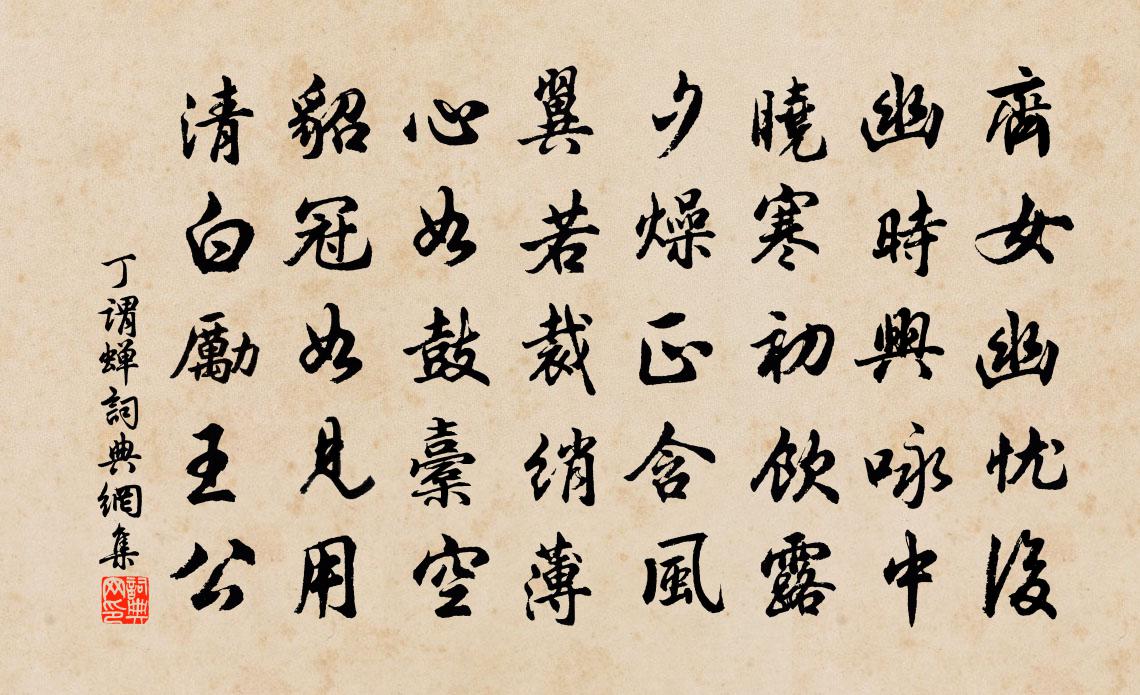 齊女幽忧後
幽時興咏中
曉寒初飲露
夕燥正含風
翼若裁綃薄
心如鼓橐空
貂冠如見用
清白勵王公
丁謂蝉詞典網集
詞典
网印